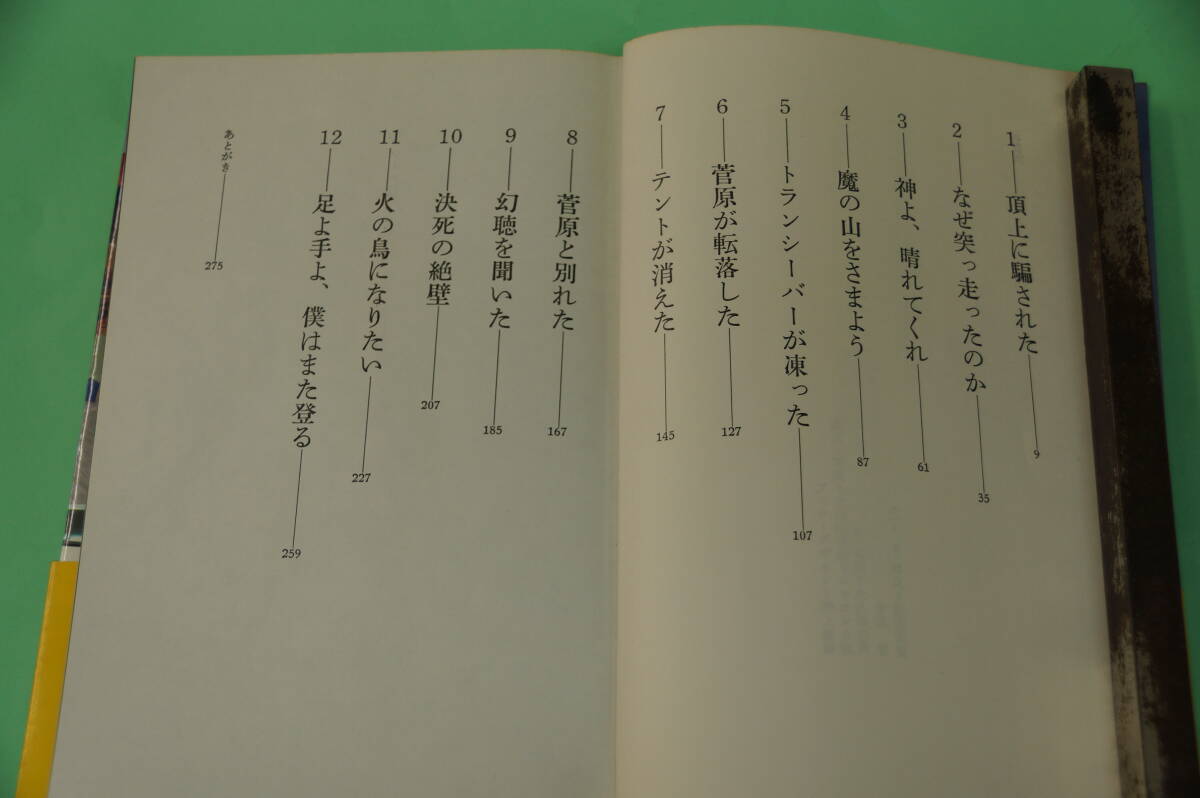 1―頂上に騙された 9
2―なぜ突っ走ったのか 35
3―神よ、晴れてくれ 61
4―魔の山をさまよう 87
5―トランシーバーが凍った 107
6―菅原が転落した 127
7―テントが消えた 145
8―菅原と別れた 167
9―幻聴を聞いた 185
10―決死の絶壁 207
11―火の鳥になりたい 227
12―足よ手よ、僕はまた登る 259
あとがき 275